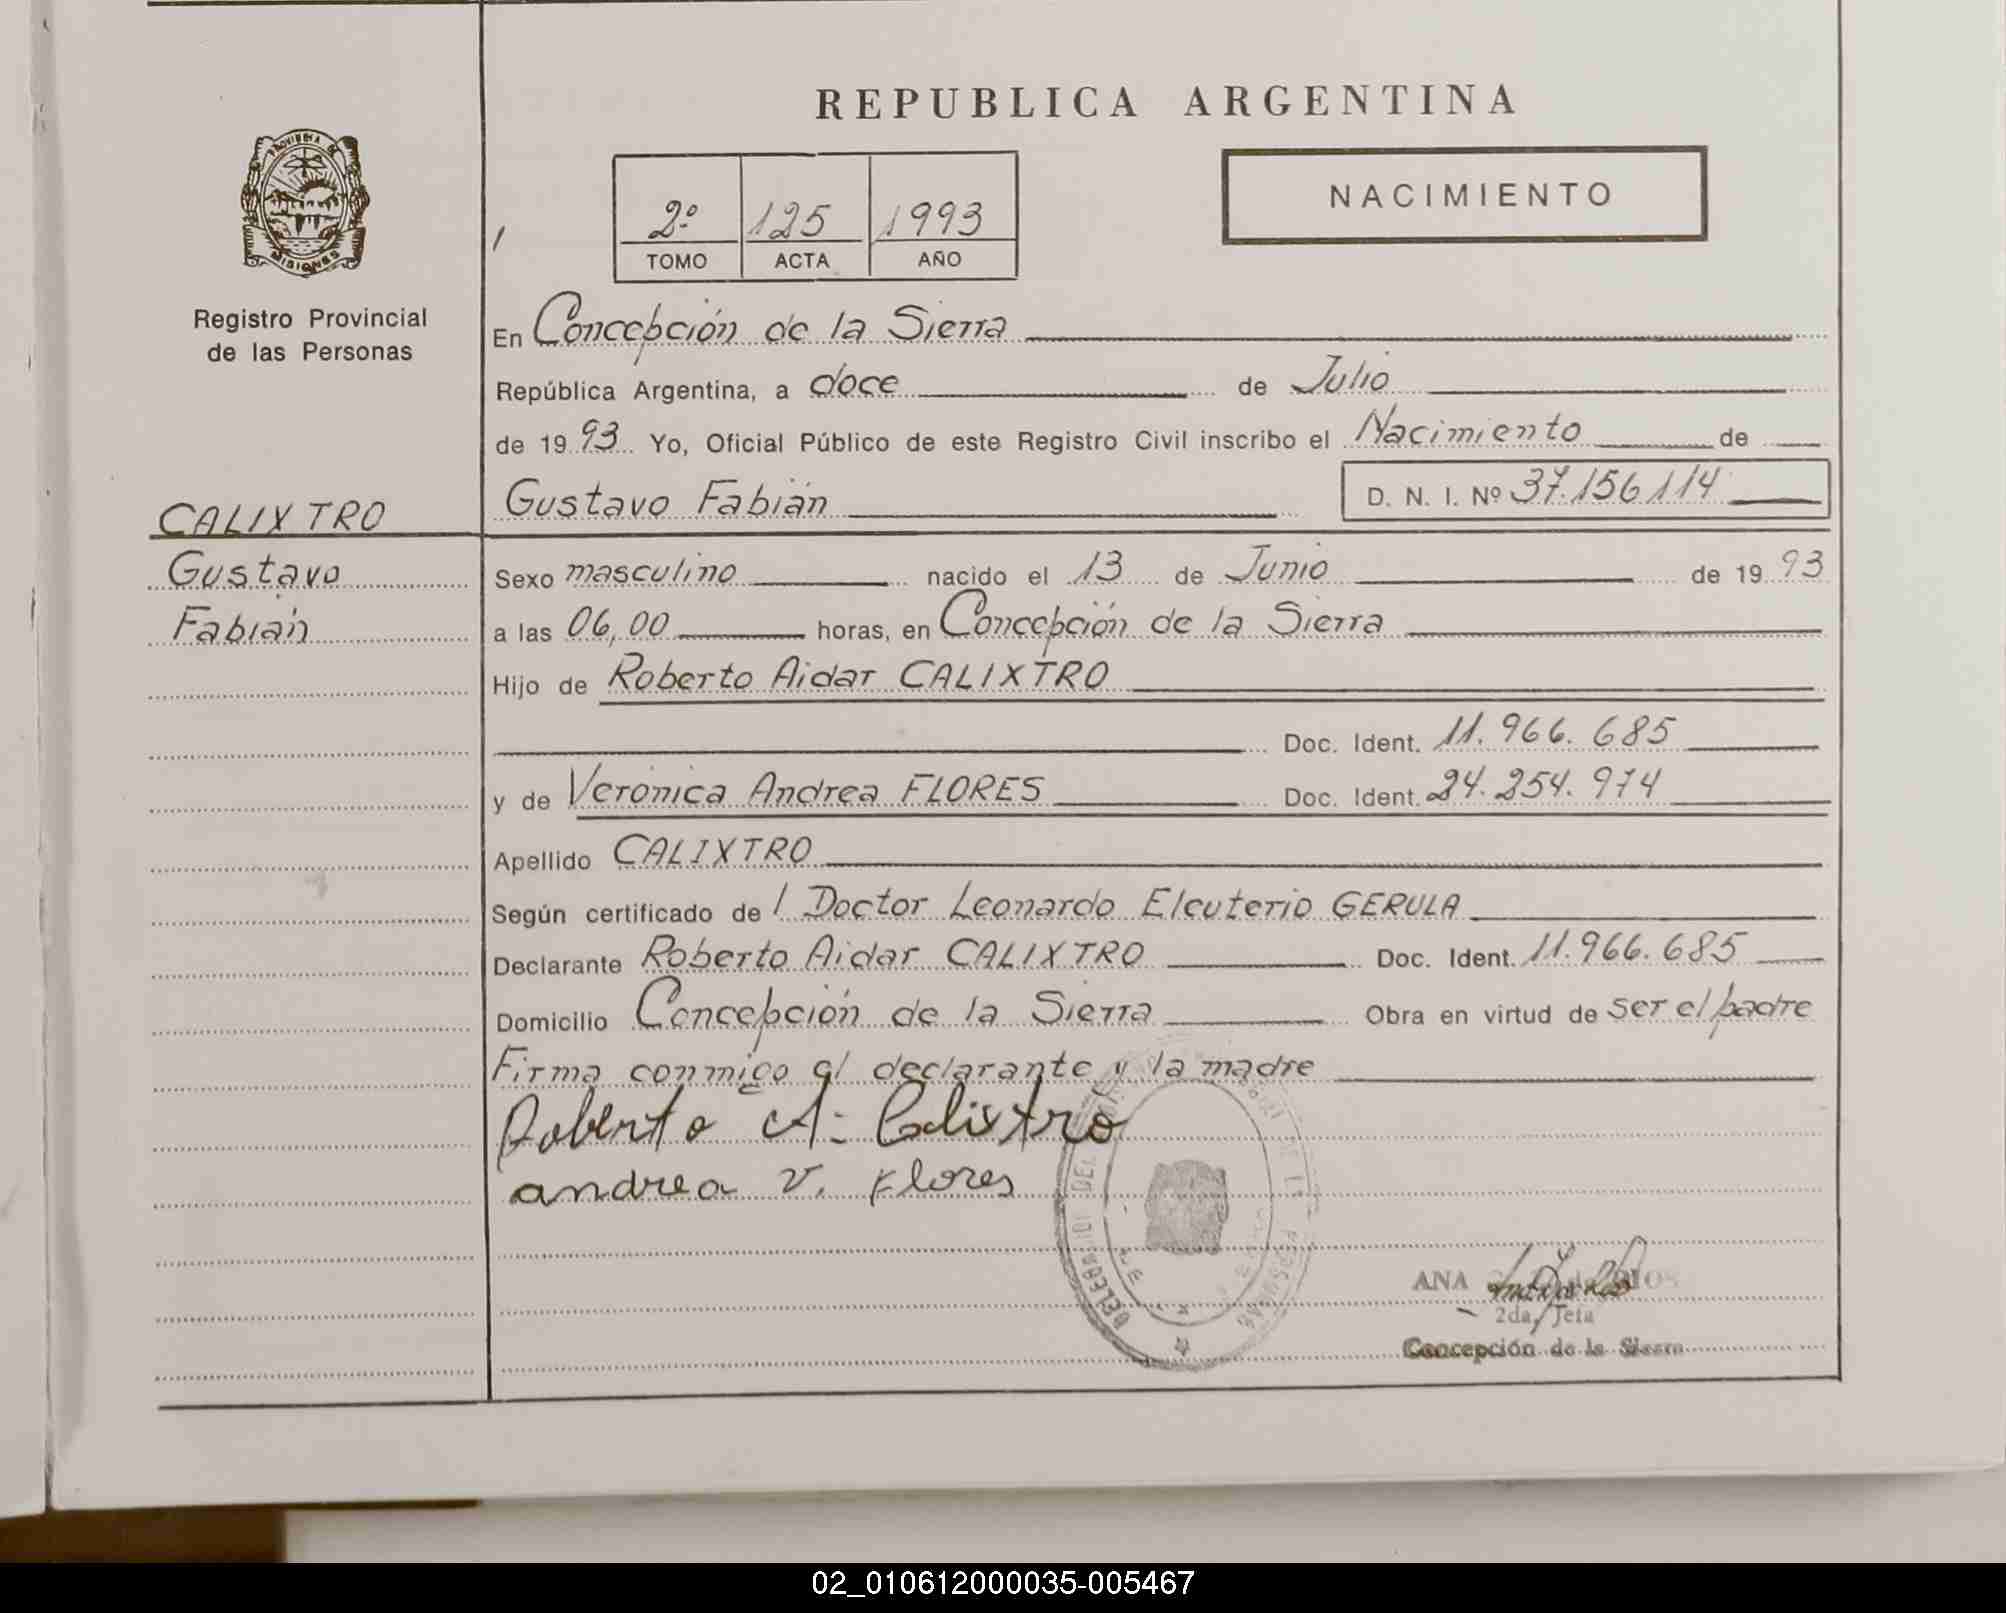 REPUBLICA ARGENTINA
PROVINCIA DE
MISIONES
Registro Provincial
de las Personas
2º 125 1993
TOMO ACTA AÑO
NACIMIENTO
En Concepción de la Sierra
República Argentina, a doce de Julio
de 1993 Yo, Oficial Público de este Registro Civil inscribo el Nacimiento de
CALIXTRO
Gustavo
Fabián
Gustavo Fabián D. N. I. Nº 37.156114
Sexo masculino nacido el 13 de Junio de 1993
a las 06,00 horas, en Concepción de la Sierra
Hijo de Roberto Aidar CALIXTRO
Doc. Ident. 11.966.685
y de Verónica Andrea FLORES Doc. Ident. 24.254.974
Apellido CALIXTRO
Según certificado de l Doctor Leonardo Eleuterio GERULA
Declarante Roberto Aidar CALIXTRO Doc. Ident. 11.966.685
Domicilio Concepción de la Sierra Obra en virtud de ser el padre
Firma conmigo el declarante y la madre
Roberto A. Calixtro
andrea v. Flores
ANA
2da. Jefa
Concepción de la Sierra
02_010612000035-005467